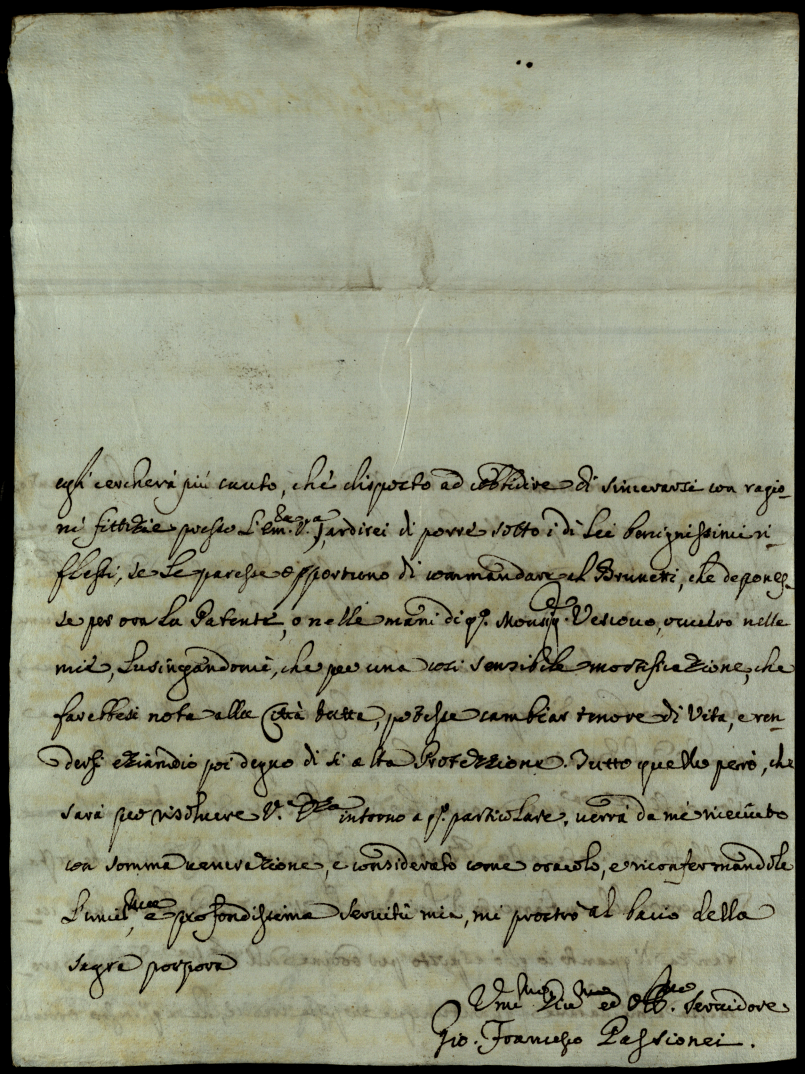 egli cercherà più cauto, che disposto ad obbidire di sincerarsi con ragio-
ni fittizie presso l'Em.za V.a, ardirei di porre sotto i di Lei benignissimi ri-
flessi, se le paresse opportuno di commandare al Brunetti, che depones-
se per ora la Patente, o nelle mani di q.o Monsig.r Vescovo, ovvero nelle
mie, lusingandomi, che per una così sensibile mortificazione, che
farebbesi nota alla Città tutta, potesse cambiar tenore di Vita, e ren-
dersi eziandio poi degno di sì alta Protezzione. Tutto quello però, che
sarà per risolvere V.a Em.za intorno a q.o particolare, verrà da me ricevuto
con somma venerazione, e considerato come oracolo, e riconfermandole
l'umil.ma, e profondissima servitù mia, mi prostro al bacio della
sagra porpora
Um.mo Div.mo ed Obb.mo Servidore
Gio. Francesco Passionei.